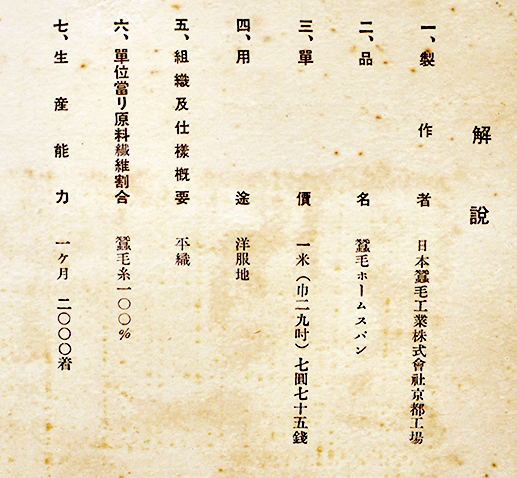 解說
一、製作者 日本蠶毛工業株式會社京都工場
二、品名 蠶毛ホームスパン
三、單價 一米(巾二九吋)七圓七十五錢
四、用途 洋服地
五、組織及仕樣槪要 平織
六、單位當リ原料纖維割合 蠶毛糸一〇〇%
七、生產能力 一ヶ月 二〇〇〇着